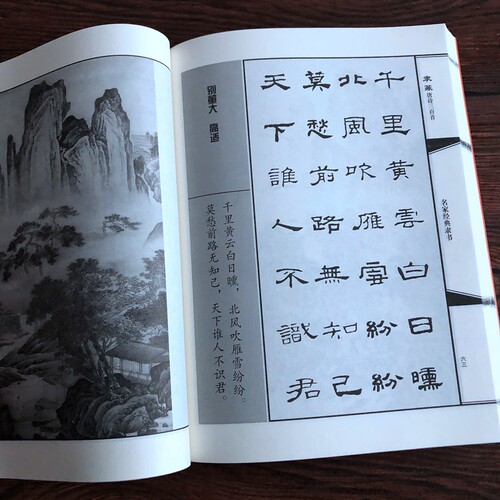 隶篆 唐诗三百首
名家经典隶书
六三
千里黃雲白日曛
北風吹雁雪紛紛
莫愁前路無知己
天下誰人不識君
别董大 高适
千里黄云白日曛，北风吹雁雪纷纷。
莫愁前路无知己，天下谁人不识君。